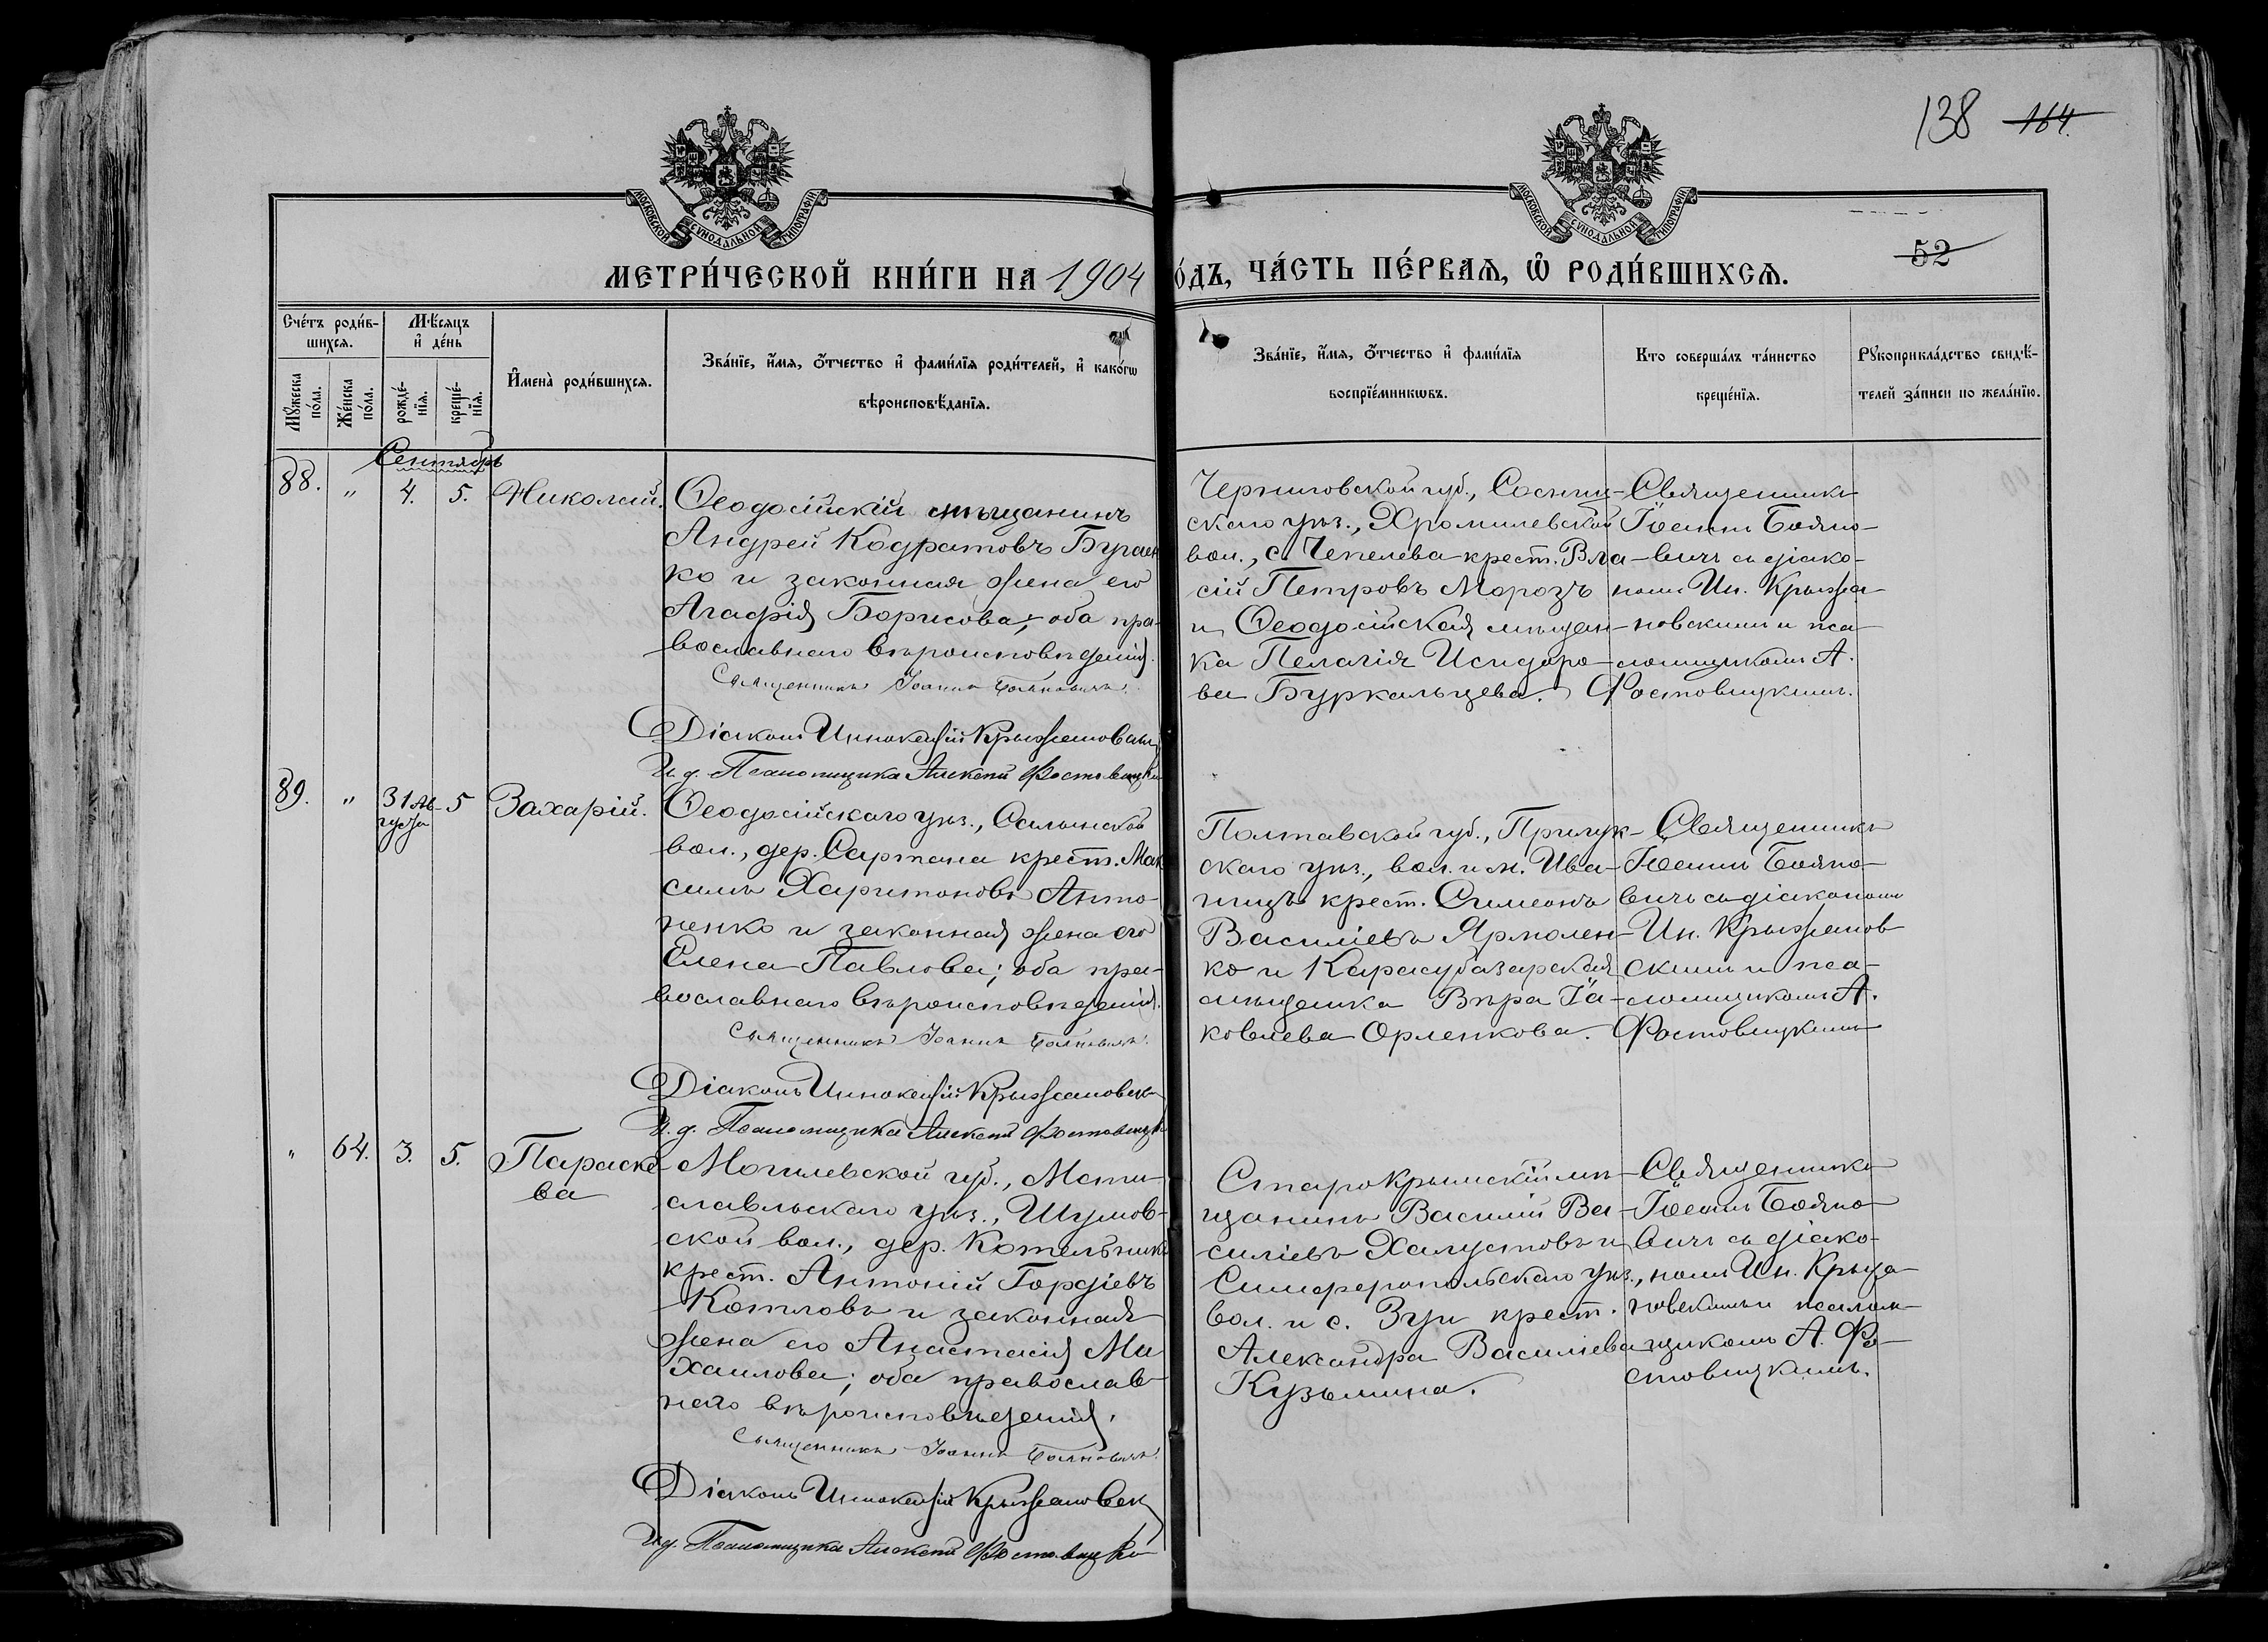 138 164.
МОСКОВСКОЙ СѴНОДАЛЬНОЙ ТИПОГРАФІИ
МОСКОВСКОЙ СѴНОДАЛЬНОЙ ТИПОГРАФІИ
52
МЕТРИ́ЧЕСКОЙ КНИ́ГИ НА 1904
О́ДЪ, ЧА́СТЬ ПЕ́РВАЯ, Ѽ РОДИ́ВШИХСЯ.
Сче́тъ роди́в-
шихся.
Мѣ́сяцъ
и҆ де́нь
Мꙋ́жеска
по́ла.
Же́нска
по́ла.
рожде́-
нїя.
креще́-
нїя.
И҆мена̀ роди́вшихся.
Зва́нїе, и҆́мя, ѻ҆́тчество и҆ фами́лїя роди́телей, и҆ како́гѡ
вѣроисповѣ́данїя.
Зва́нїе, и҆́мя, ѻ҆́тчество и҆ фами́лїя
воспрїе́мникωвъ.
Кто соверша́лъ та́инство
креще́нїя.
Рꙋкоприкла́дство свидѣ́-
телей за́писи по жела́нїю.
Сентябрь
88. " 4. 5. Николай.
Ѳеодосійскій мѣщанинъ
Андрей Кодратовъ Бугаен
ко и законная жена его
Агафія Борисова; оба пра-
вославнаго вѣроисповѣданія.
Священникъ Іоаннъ Бояновичъ.
Діаконъ Иннокентій Крыжановскій
И. д. Псаломщика Алексѣй Фостовицкій
Черниговской губ., Сосниц-
скаго уѣз., Хромилевской
вол., с. Чепелева крест. Вла-
сій Петровъ Морозъ
и Ѳеодосійская мѣщан-
ка Пелагія Исидоро-
ва Буркальцева.
Священникъ
Іоаннъ Бояно-
вичъ съ діако-
номъ Ин. Крыжа-
новскимъ и пса-
ломщикомъ А.
Фостовицкимъ.
89. " 31 Ав-
густа 5 Захарій.
Ѳеодосійскаго уѣз., Салынской
вол., дер. Сартана крест. Мак
симъ Харитоновъ Анто-
ненко и законная жена его
Елена Павлова; оба пра-
вославнаго вѣроисповѣданія.
Священникъ Іоаннъ Бояновичъ.
Діаконъ Иннокентій Крыжановскій
И. д. Псаломщика Алексѣй Фостовицкій
Полтавской губ., Прилук-
скаго уѣз., вол. и м. Ива-
ницъ крест. Симеонъ
Василіевъ Ярмолен-
ко и Карасубазарская
мѣщанка Вѣра Іа-
ковлева Орленкова.
Священникъ
Іоаннъ Бояно-
вичъ съ діакономъ
Ин. Крыжанов
скимъ и пса-
ломщикомъ А.
Фостовицкимъ
" 64. 3. 5. Параске
ва
Могилевской губ., Мсти-
славльскаго уѣз., Шумов-
ской вол., дер. Котельники
крест. Антоній Гордіевъ
Котловъ и законная
жена его Анастасія Ми
хаилова; оба православ
наго вѣроисповѣданія.
Священникъ Іоаннъ Бояновичъ.
Діаконъ Иннокентій Крыжановск
И. д. Псаломщика Алексѣй Фостовицкій
Старокрымскій мѣ-
щанинъ Василій Ва-
силіевъ Халустовъ и
Симферопольскаго уѣз.,
вол. и с. Зуи крест.
Александра Василіева
Кузьмина.
Священникъ
Іоаннъ Бояно-
вичъ съ діако-
номъ Ин. Крыжа-
новскимъ и псалом-
щикомъ А. Фо-
стовицкимъ.